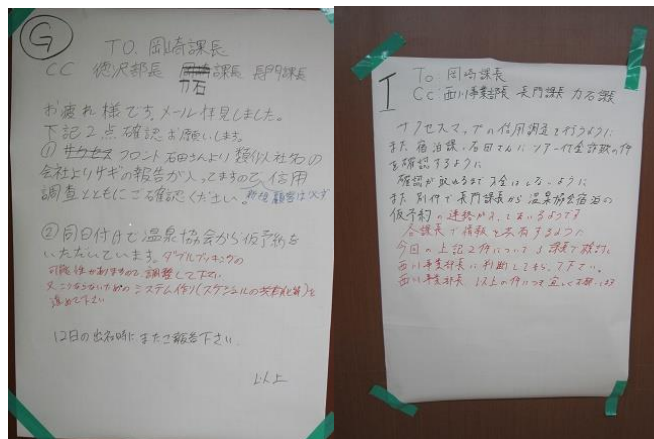 G
TO. 岡崎課長
CC 徳沢部長 岡崎課長 長門課長
力石
お疲れ様です。メール拝見しました。
下記2点確認お願いします。
① サクセス フロント 石田さんより 類似社名の
会社よりサギの報告が入ってますので、信用
調査とともにご確認ください。新規顧客は必ず
② 同日付けで温泉協会から仮予約を
いただいています。ダブルブッキングの
可能性がありますので調整して下さい
又こうならないためのシステム作り(スケジュールの共有化等)を
進めて下さい
12日の出社時にまたご報告下さい
以上
I
To 岡崎課長
Cc: 西川事業部長 長門課長 力石課長
サクセスマップの信用調査を行うように
また宿泊課・石田さんに ツアー代金詐欺の件
を確認するように
確認が取れるまで入金はしないように
また 別件で長門課長から温泉協会宿泊の
仮予約の連絡が入っているようです
各課長で情報を共有するように
今回の上記2件について3課長で検討し
西川事業部長に判断してもらって下さい。
西川事業部長、以上の件につき宜しくお願いします